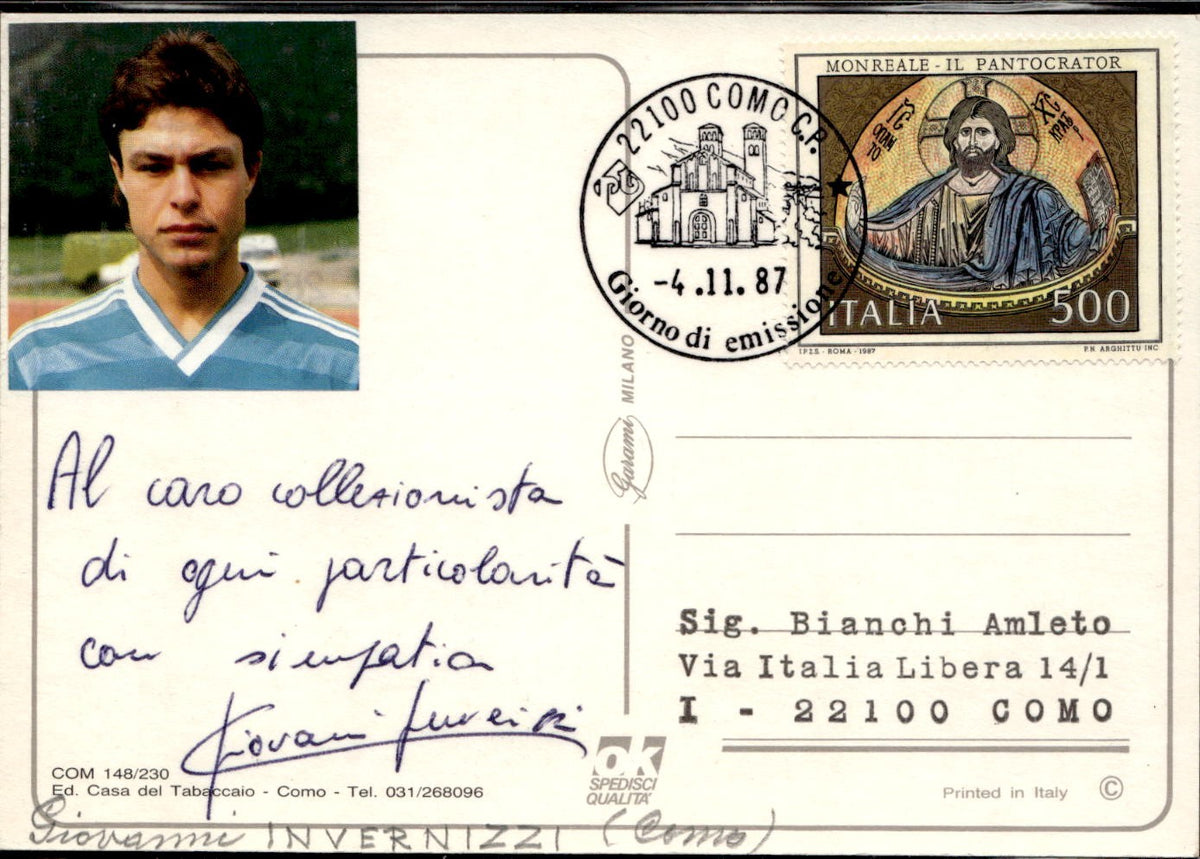 22100 COMO C.P.
-4.11.87
Giorno di emissione
MONREALE - IL PANTOCRATOR
ITALIA 500
I.P.Z.S. - ROMA - 1987
P.N. ARGHITTU INC
Garami MILANO
Al caro collezionista
di ogni particolarità
con simpatia
Giovanni Invernizzi
Sig. Bianchi Amleto
Via Italia Libera 14/1
I - 22100 COMO
COM 148/230
Ed. Casa del Tabaccaio - Como - Tel. 031/268096
ok
SPEDISCI
QUALITA'
Printed in Italy ©
Giovanni INVERNIZZI (Como)